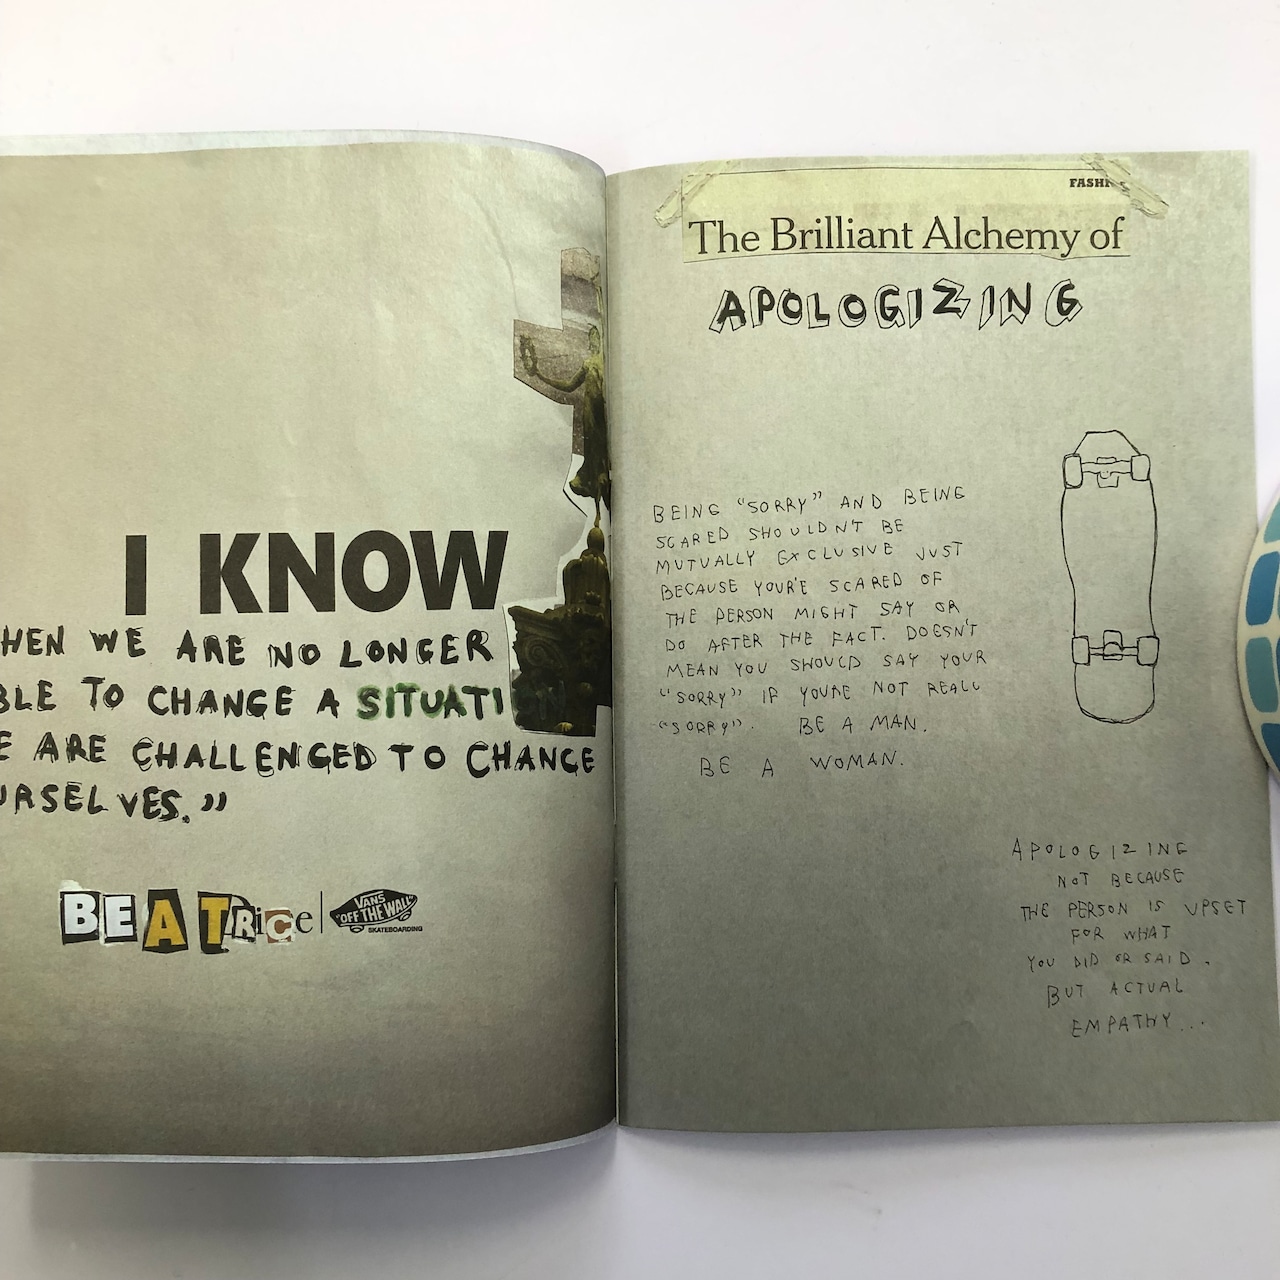 I KNOW
HEN WE ARE NO LONGER
BLE TO CHANGE A SITUATI
E ARE CHALLENGED TO CHANGE
URSELVES."
BEATRice
VANS
"OFF THE WALL"
SKATEBOARDING
FASHI
The Brilliant Alchemy of
APOLOGIZING
BEING "SORRY" AND BEING
SCARED SHOULDN'T BE
MUTUALLY EXCLUSIVE JUST
BECAUSE YOUR'E SCARED OF
THE PERSON MIGHT SAY OR
DO AFTER THE FACT. DOESN'T
MEAN YOU SHOULD SAY YOUR
"SORRY" IF YOU'RE NOT REALL
"SORRY". BE A MAN.
BE A WOMAN.
APOLOGIZING
NOT BECAUSE
THE PERSON IS UPSET
FOR WHAT
YOU DID OR SAID.
BUT ACTUAL
EMPATHY...